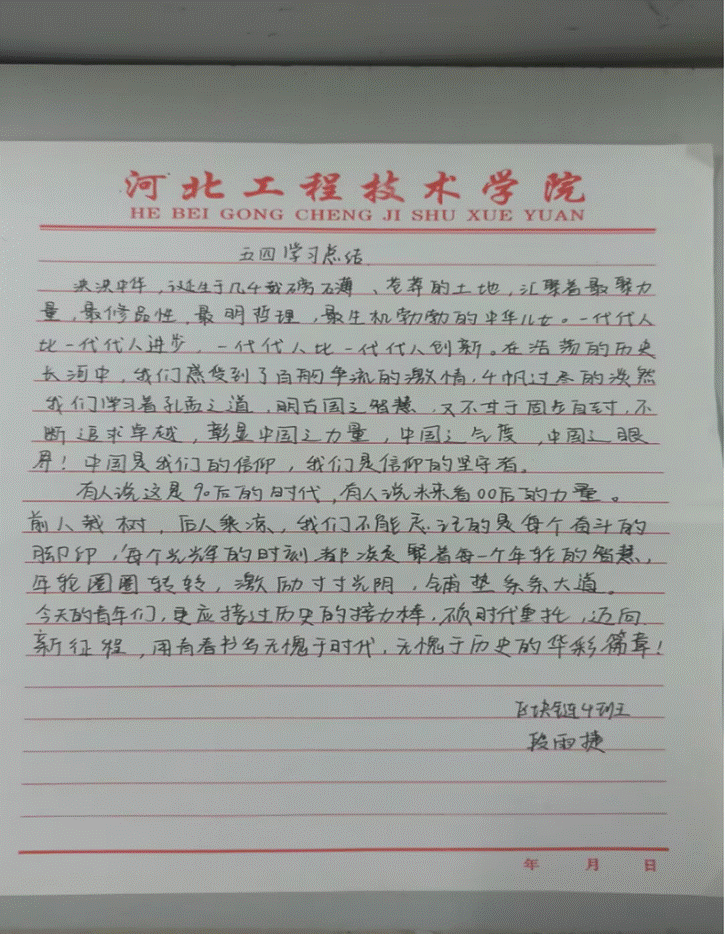 河北工程技术学院
HE BEI GONG CHENG JI SHU XUE YUAN
五四学习总结
泱泱中华,诞生于几千载磅礴、苍莽的土地,汇聚着最聚力
量,最修品性,最明哲理,最生机勃勃的中华儿女。一代代人
比一代代人进步,一代代人比一代代人创新。在浩荡的历史
长河中,我们感受到了百舸争流的激情,千帆过尽的淡然
我们学习着孔孟之道,明古国之智慧,又不甘于固步自封,不
断追求卓越,彰显中国之力量,中国之气度,中国之眼
界!中国是我们的信仰,我们是信仰的坚守者。
有人说这是90后的时代,有人说未来看00后的力量。
前人栽树,后人乘凉,我们不能忘记的是每个奋斗的
脚印,每个光辉的时刻都凝聚着每一个年轮的智慧,
年轮圈圈转转,激励寸寸光阴,铺垫条条大道。
今天的青年们,更应接过历史的接力棒,不负时代重托,迈向
新征程,用青春书写无愧于时代,无愧于历史的华彩篇章!
区块链4班
段雨捷
年 月 日